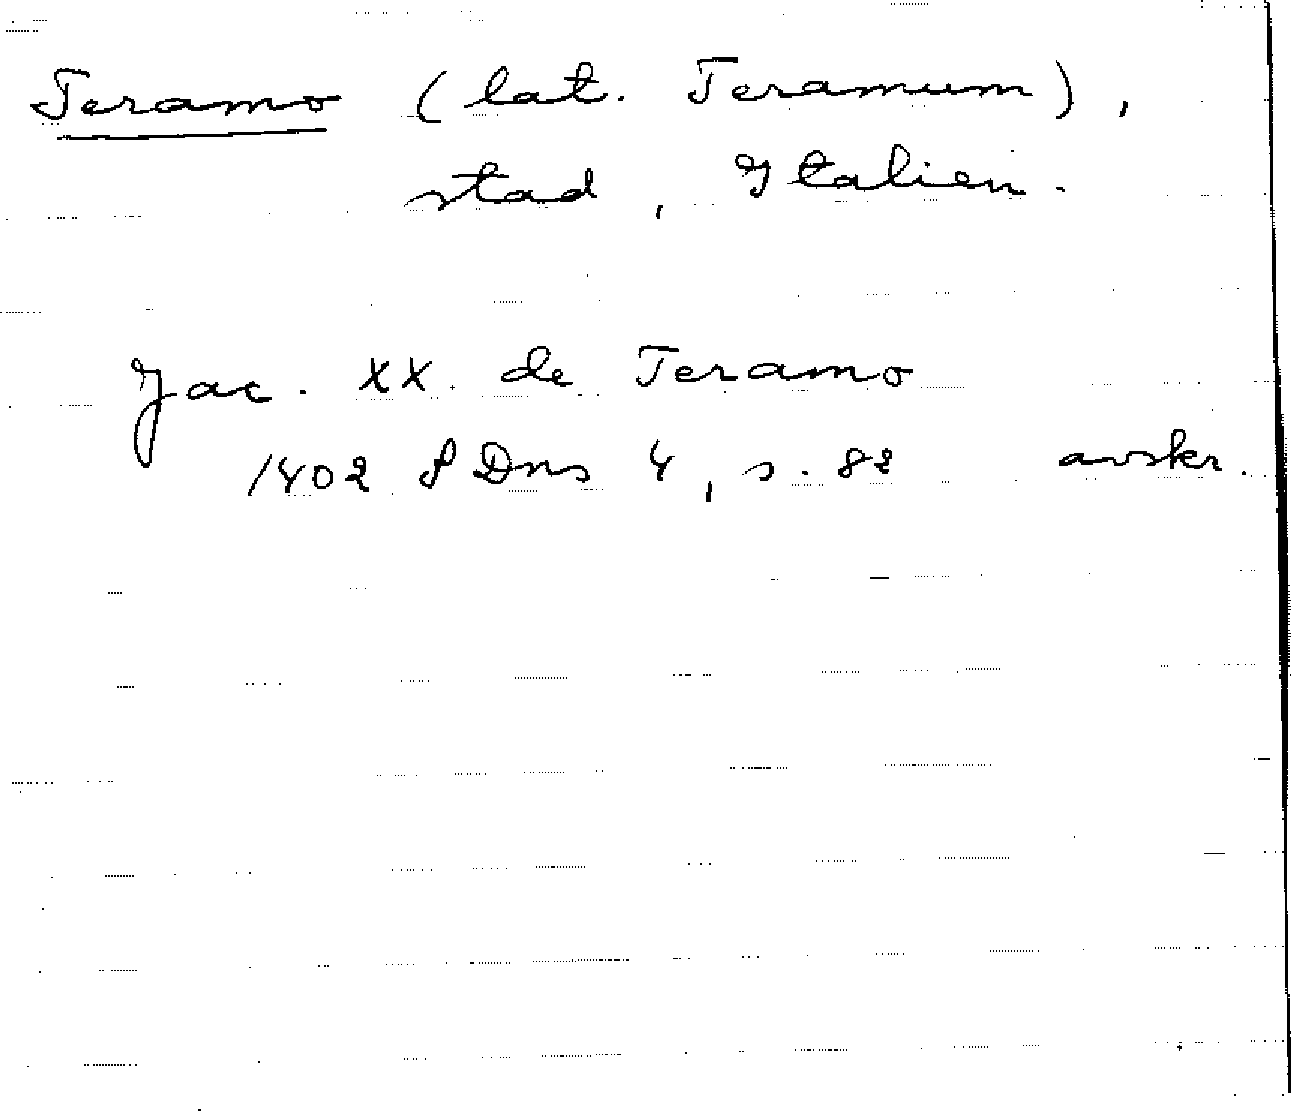 Teramo (lat. Teramum),
stad, Italien.
Jac. XX. de Teramo
1402 SDns 4, s. 82 avskr.